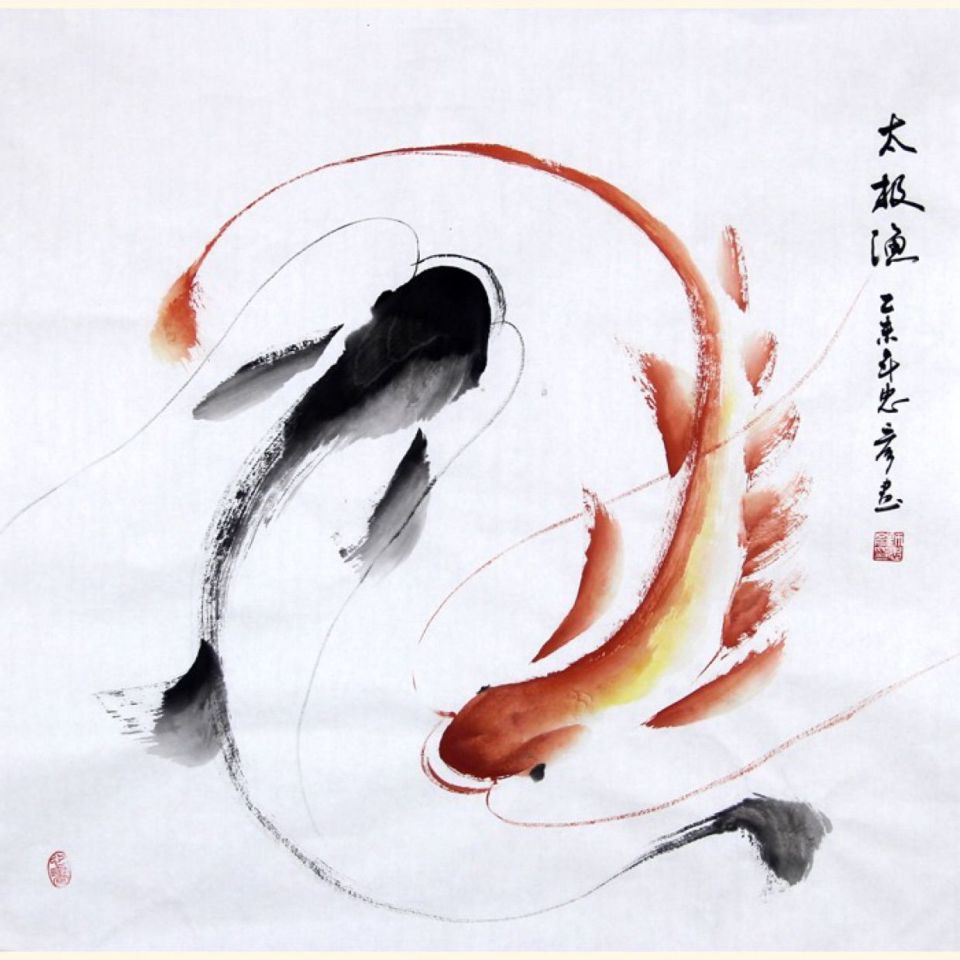 太极渔
乙未年忠彦画